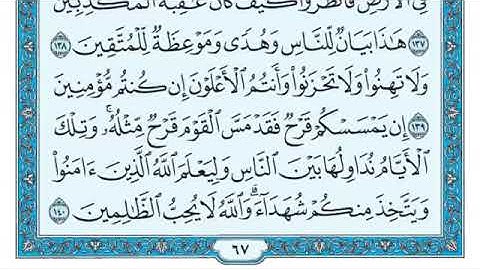 فِى ٱلْأَرْضِ فَٱنظُرُوا۟ كَيْفَ كَانَ عَٰقِبَةُ ٱلْمُكَذِّبِينَ
١٣٧ هَٰذَا بَيَانٌ لِّلنَّاسِ وَهُدًى وَمَوْعِظَةٌ لِّلْمُتَّقِينَ ١٣٨
وَلَا تَهِنُوا۟ وَلَا تَحْزَنُوا۟ وَأَنتُمُ ٱلْأَعْلَوْنَ إِن كُنتُم مُّؤْمِنِينَ
١٣٩ إِن يَمْسَسْكُمْ قَرْحٌ فَقَدْ مَسَّ ٱلْقَوْمَ قَرْحٌ مِّثْلُهُۥ ۚ وَتِلْكَ
ٱلْأَيَّامُ نُدَاوِلُهَا بَيْنَ ٱلنَّاسِ وَلِيَعْلَمَ ٱللَّهُ ٱلَّذِينَ ءَامَنُوا۟
وَيَتَّخِذَ مِنكُمْ شُهَدَآءَ ۗ وَٱللَّهُ لَا يُحِبُّ ٱلظَّٰلِمِينَ ١٤٠
٦٧